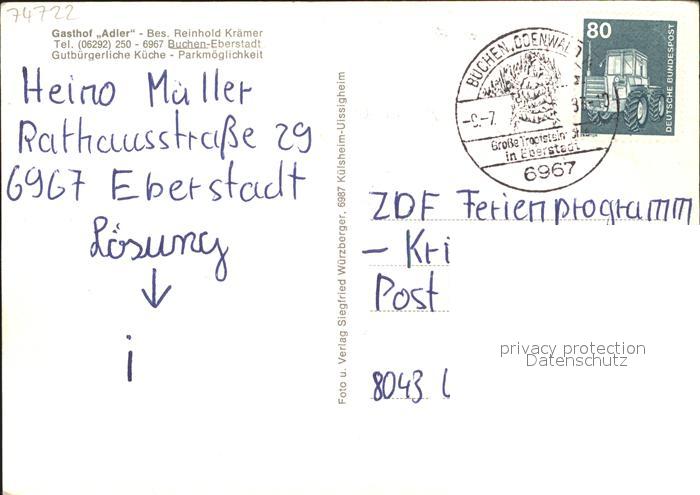 74722
Gasthof „Adler" - Bes. Reinhold Krämer
Tel. (06292) 250 - 6967 Buchen-Eberstadt
Gutbürgerliche Küche - Parkmöglichkeit
Heino Müller
Rathausstraße 29
6967 Eberstadt
Lösung
↓
i
Foto u. Verlag Siegfried Würzberger, 6987 Külsheim-Uissigheim
BUCHEN, ODENWALD
Große Tropfstein
in Eberstadt
6967
80
DEUTSCHE BUNDESPOST
ZDF Ferienprogramm
- Kri
Post
8043
privacy protection
Datenschutz